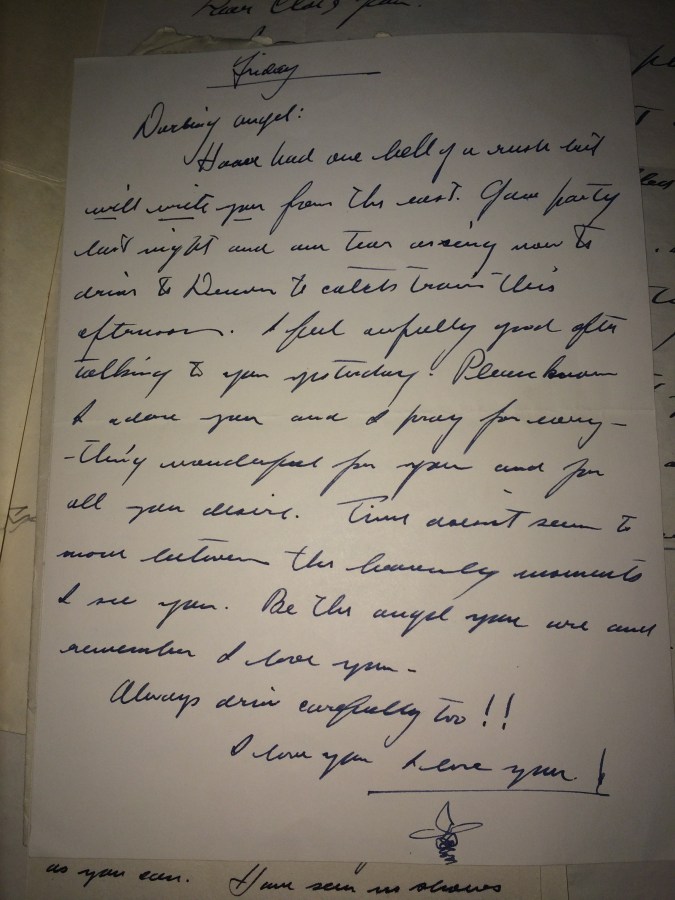 Dear
Friday
Darling angel:
Have had one hell of a rush but
will write you from the east. Gave party
last night and am tear assing now to
drive to Denver to catch train this
afternoon. I feel awfully good after
talking to you yesterday. Please know
I adore you and I pray for every-
-thing wonderful for you and for
all you desire. Time doesn't seem to
move between the heavenly moments
I see you. Be the angel you are and
remember I love you-
Always drive carefully too!!
I love you I love you!
as you can. Have seen no shows